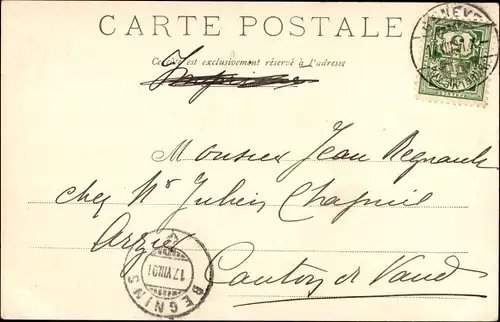 CARTE POSTALE
Ce côté est exclusivement réservé à l'adresse
Imprimé
Monsieur Jean Regnault
chez Mr Julien Chapuis
Arzier
Canton de Vaud
BEGNINS
17.VIII.01
GENÈVE